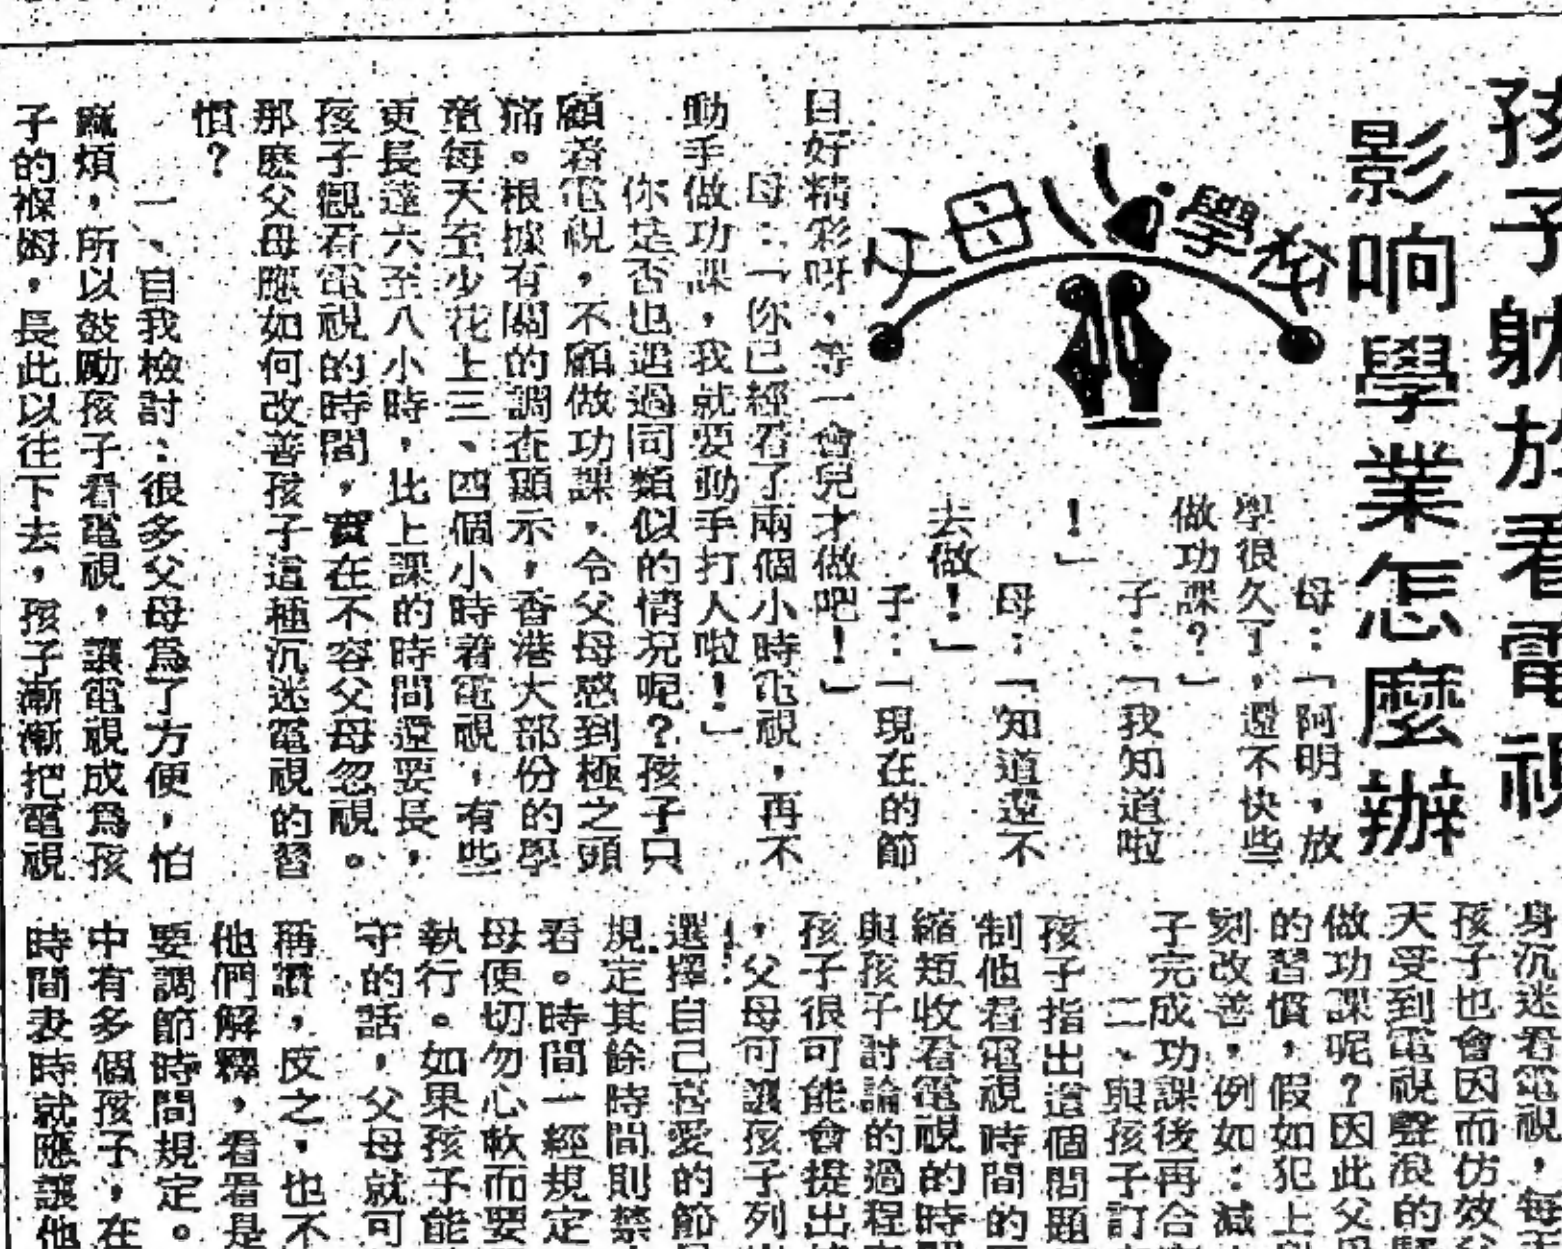 孩子躭於看電視
影响學業怎麼辦
父母學校
母：「阿明，放
學很久了，還不快些
做功課？」
子：「我知道啦
！」
母：「知道還不
去做！」
子：「現在的節
目好精彩呀，等一會兒才做吧！」
母：「你已經看了兩個小時電視，再不
動手做功課，我就要動手打人啦！」
你是否也遇過同類似的情况呢？孩子只
顧着電視，不願做功課，令父母感到極之頭
痛。根據有關的調查顯示，香港大部份的學
童每天至少花上三、四個小時看電視，有些
更長達六至八小時，比上課的時間還要長，
孩子觀看電視的時間，實在不容父母忽視。
那麽父母應如何改善孩子這種沉迷電視的習
慣？
一、自我檢討：很多父母爲了方便，怕
麻煩，所以鼓勵孩子看電視，讓電視成爲孩
子的褓姆，長此以往下去，孩子漸漸把電視
身沉迷看電視，每
孩子也會因而仿效
天受到電視聲浪的
做功課呢？因此父
的習慣，假如犯上
刻改善，例如：減
子完成功課後再合
二、與孩子訂
孩子指出這個問題
制他看電視時間的
縮短收看電視的時
與孩子討論的過程
孩子很可能會提出
，父母可讓孩子列
選擇自己喜愛的節
規定其餘時間則禁
看。時間一經規定
母便切勿心軟而要
執行。如果孩子能
守的話，父母就可
稱讚，反之，也不
他們解釋，看看是
要調節時間規定。
中有多個孩子，在
時間表時就應讓他